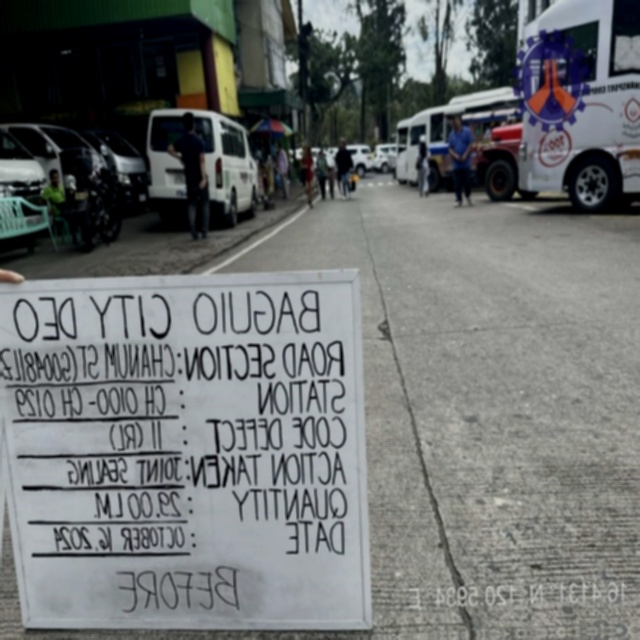 BAGUIO CITY DEO
ROAD SECTION: CHANUM ST (G00481
STATION : CH 0100 - CH 0129
CODE DEFECT : 11 (RL)
ACTION TAKEN: JOINT SEALING
QUANTITY : 29.00 LM.
DATE : OCTOBER 16, 2024
BEFORE